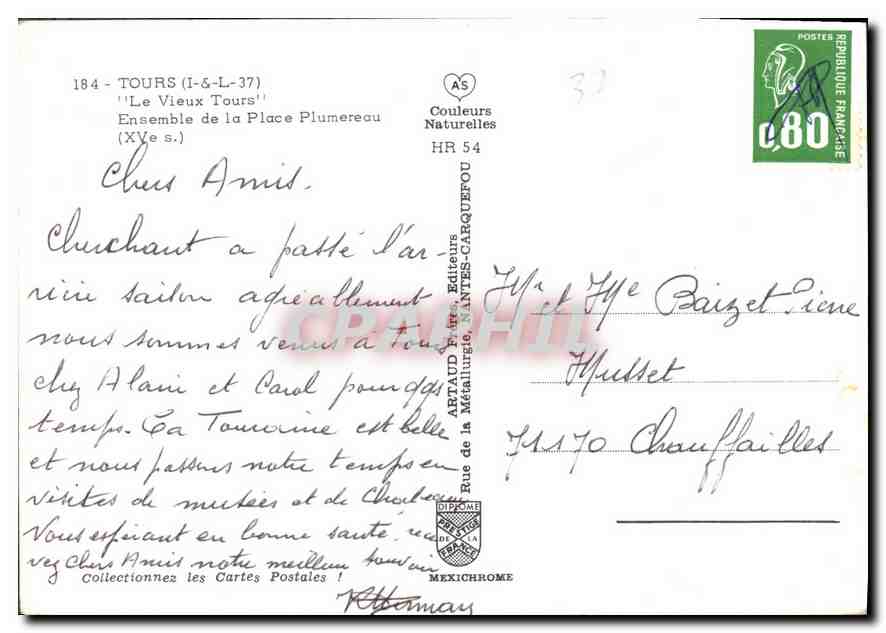 184 - TOURS (I-&-L-37)
"Le Vieux Tours"
Ensemble de la Place Plumereau
(XVe s.)
Chers Amis.
Cherchant a passé l'ar-
rière saison agréablement
nous sommes venus à Tours
chez Alain et Carol pour qqs
temps. La Touraine est belle
et nous passons notre temps en
visites de musées et de Chateaux
Vous espérant en bonne santé, rece
vez Chers Amis notre meilleur souvenir
Collectionnez les Cartes Postales !
AS
Couleurs
Naturelles
HR 54
ARTAUD Frères, Editeurs
Rue de la Métallurgie, NANTES-CARQUEFOU
DIPLOME
PRESTIGE
DE LA
FRANCE
MEXICHROME
CPAPHIL
POSTES
REPUBLIQUE FRANÇAISE
0,80
Mr et Mme Baizet Pierre
Musset
71170 Chauffailles